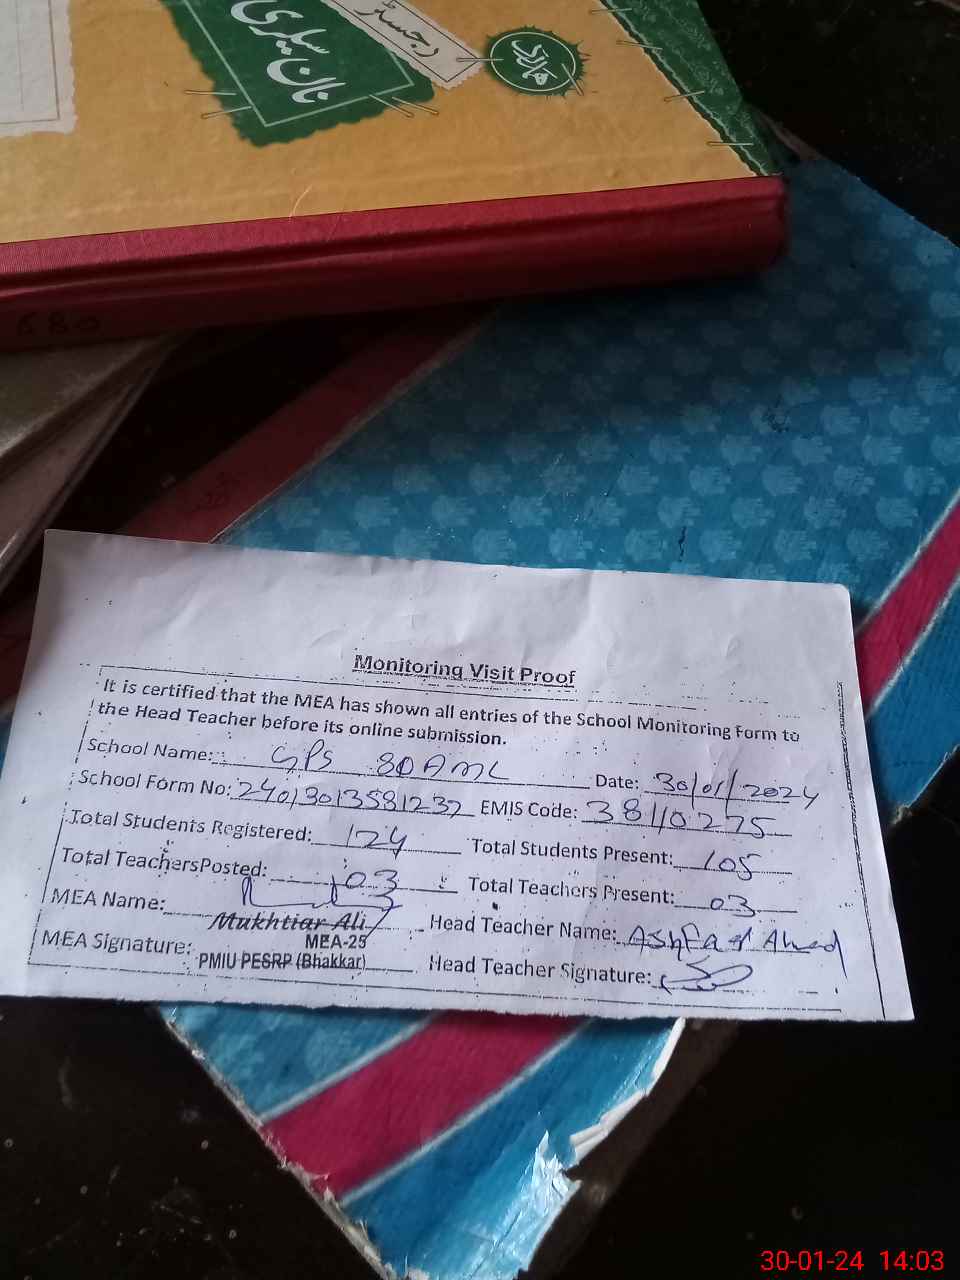 رجسٹر
نان سیلری
680
Monitoring Visit Proof
It is certified that the MEA has shown all entries of the School Monitoring Form to
the Head Teacher before its online submission.
School Name: GPS 80 AML Date: 30/01/2024
School Form No: 24013013581232 EMIS Code: 38110275
Total Students Registered: 124 Total Students Present: 105
Total TeachersPosted: 03 Total Teachers Present: 03
MEA Name: Mukhtiar Ali Head Teacher Name: Ashfaq Ahmed
MEA-25
MEA Signature: PMIU PESRP (Bhakkar) Head Teacher Signature:
30-01-24 14:03